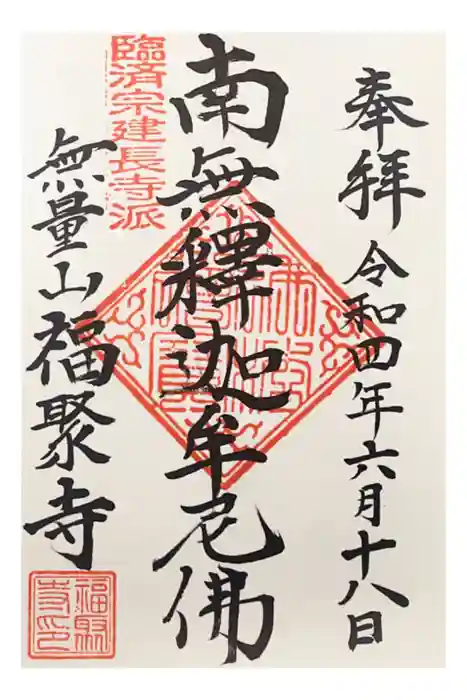 奉拝
令和四年六月十八日
南無釋迦牟尼佛
臨済宗建長寺派
無量山福聚寺
福聚寺印